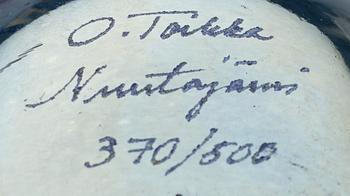 O. Toikka
Nuutajärvi
370/500